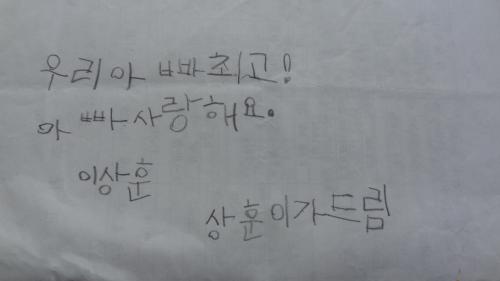 우리아 빠최고!
아 빠사랑해요.
이상훈
상훈이가드림